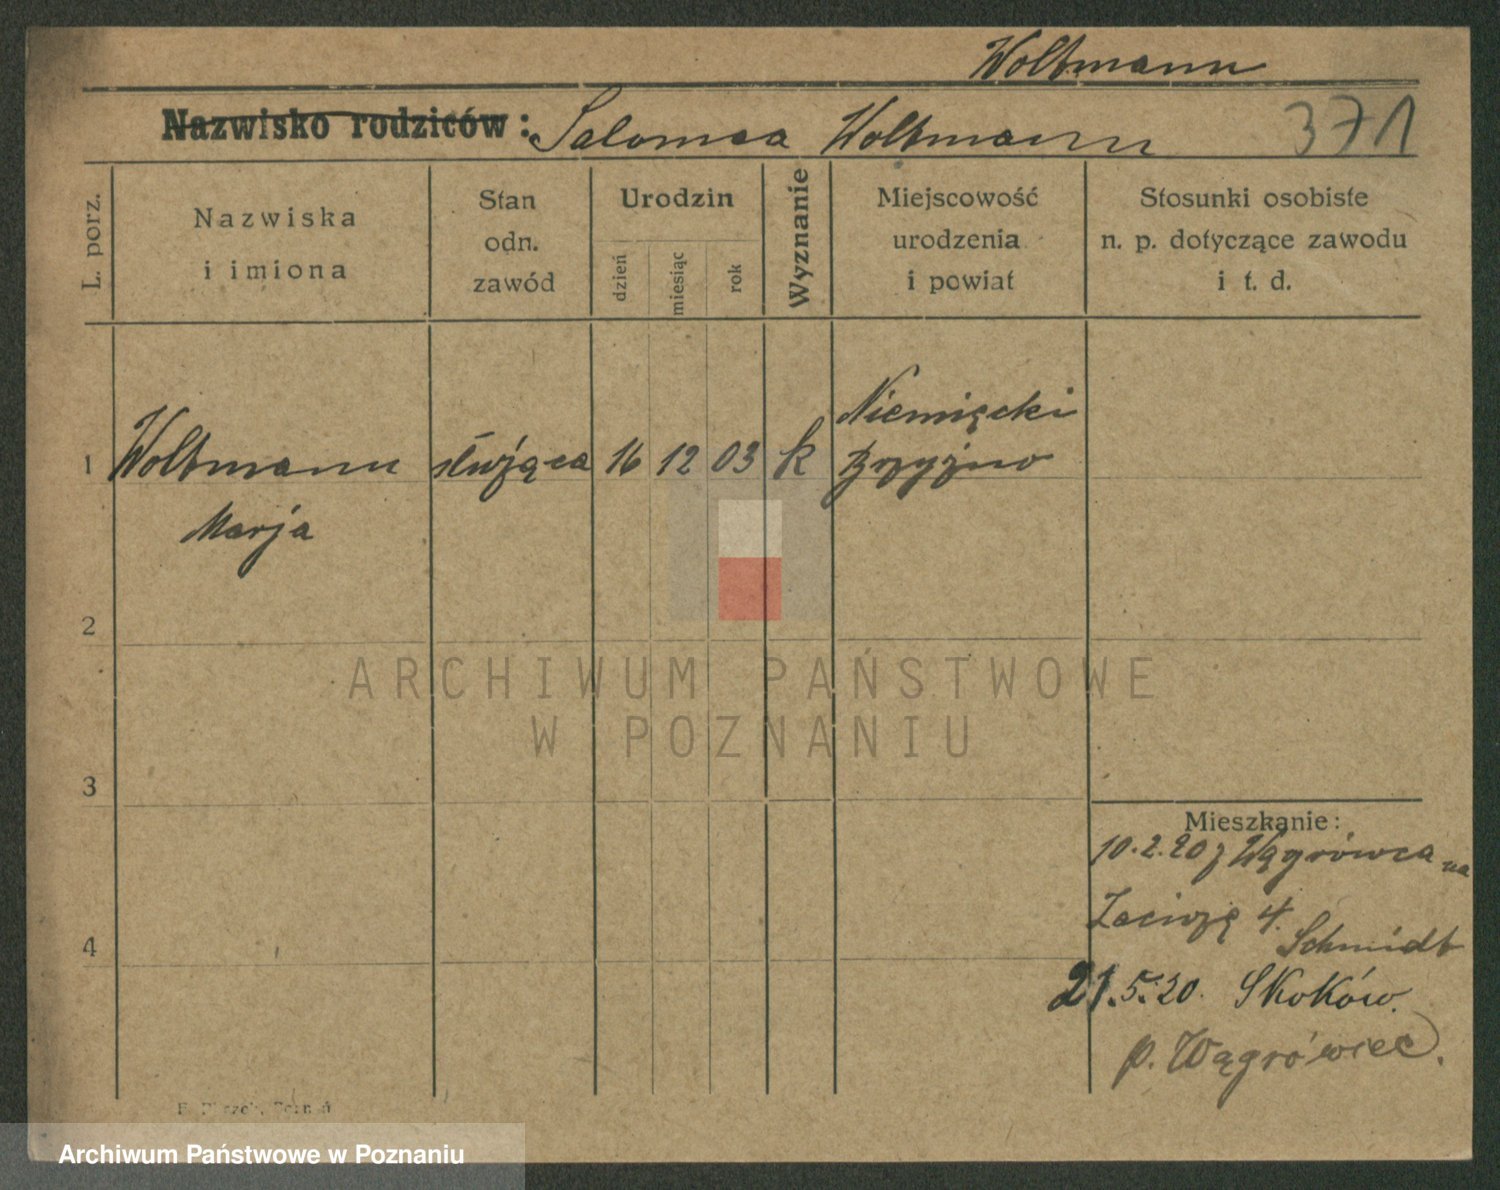 Woltmann
Nazwisko rodziców: Salomea Woltmann 371
L. porz.
Nazwiska
i imiona
Stan
odn.
zawód
Urodzin
dzień
miesiąc
rok
Wyznanie
Miejscowość
urodzenia
i powiat
Stosunki osobiste
n. p. dotyczące zawodu
i t. d.
Niemięcki
1 Woltmann służąca 16 12 03 k
Marja
2
ARCHIWUM PAŃSTWOWE
W POZNANIU
3
Mieszkanie:
10.2.20 z Wągrówca na
Zaciszę 4.
Schmidt
4
21.5.20. Skoków.
p. Wągrówiec.
Archiwum Państwowe w Poznaniu